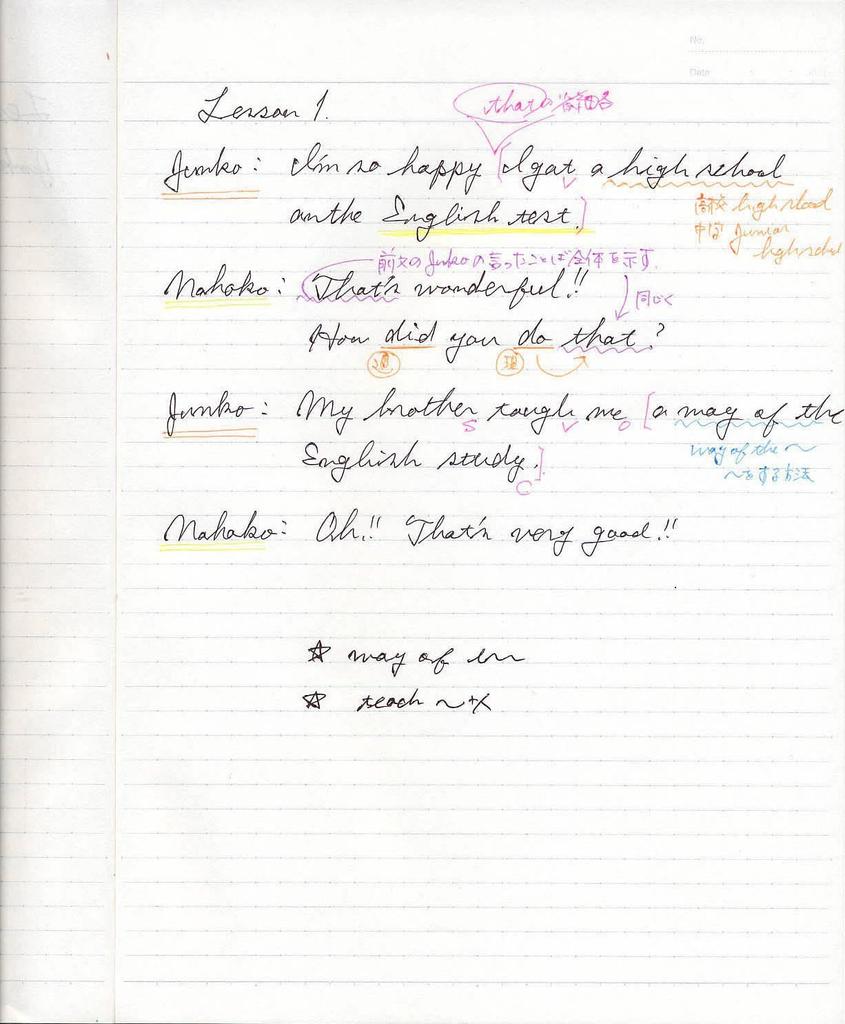 No.
Date
Lesson 1.
thatの省略
Junko: I'm so happy [I got a high school
v
on the English test.]
高校 high shool
中学 junior
high school
前文のJunkoの言ったことば全体を示す.
Nahoko: That's wonderful!!
同じく
How did you do that?
Junko: My brother tough me [a way of the
S V O
English study.]
C
way of the ~
~をする方法
Nahoko: Oh!! That's very good!!
☆ way of
☆ teach ~+X